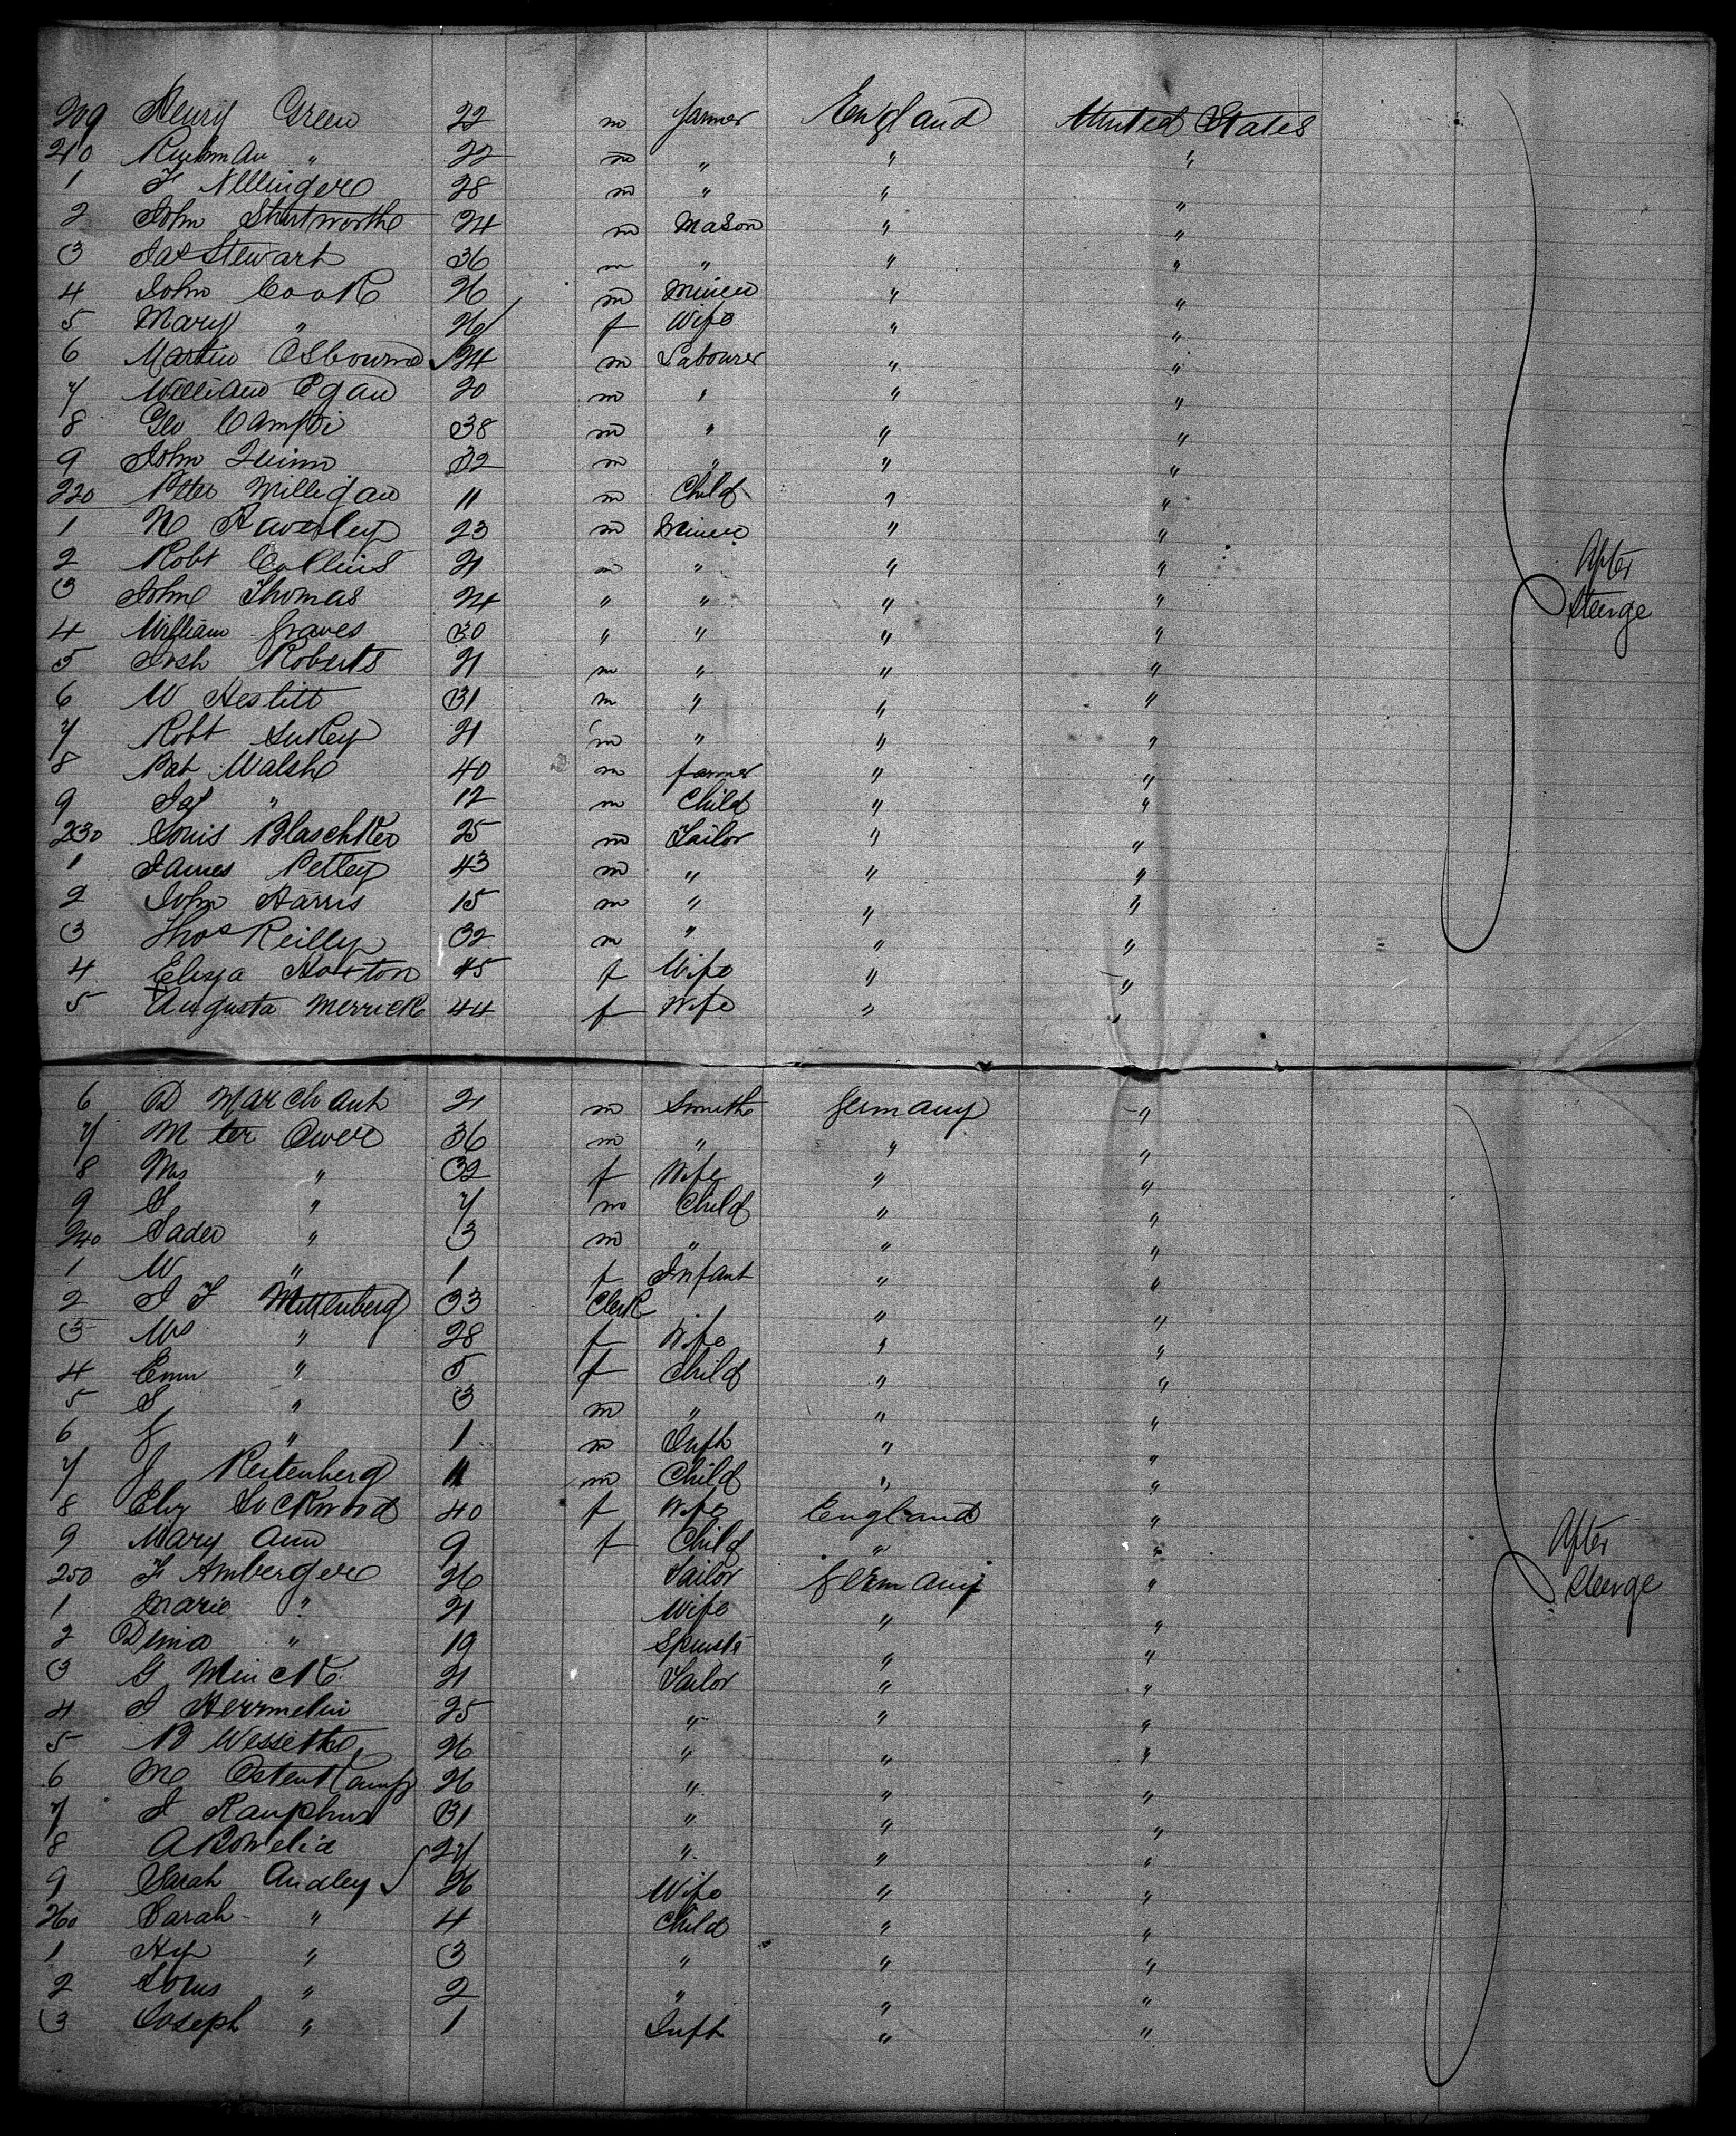 209 Henry Green 22 m farmer England United States
210 " 22 m " " "
1 F 28 m " " "
2 John Shutworth 24 m Mason " "
3 Jas Stewart 36 m " " "
4 John Cook 26 m Miner " "
5 Mary " 26 f Wife " "
6 Martin Osbourne 24 m Labourer " "
7 William Egan 20 m " " "
8 Geo 38 m " " "
9 John Quinn 32 m " " "
220 Peter Milligan 11 m Child " "
1 23 m Miner " "
2 Robt Collins 21 m " " "
3 John Thomas 24 " " " "
4 William Graves 30 " " " "
5 Josh Roberts 21 m " " "
6 W 31 m " " "
7 Robt 21 m " " "
8 Pat Walsh 40 m farmer " "
9 Jas " 12 m Child " "
230 Louis Blaschker 25 m Tailor " "
1 James Pettey 43 m " " "
2 John Harris 15 m " " "
3 Thos Reilly 32 m " " "
4 Eliza 45 f Wife " "
5 Augusta Merrick 44 f Wife " "
After
Steerge
6 D Marchant 21 m Smith Germany "
7 M ter Ower 36 m " " "
8 Mrs " 32 f Wife " "
9 S " 7 m Child " "
240 " 3 m " " "
1 W " 1 f Infant " "
2 33 Clerk " "
3 Mrs " 28 f Wife " "
4 " 5 f Child " "
5 S " 3 m " " "
6 J " 1 m Inft " "
7 J Reitenberg 11 m Child " "
8 Eliz Lockwood 40 f Wife England "
9 Mary Ann 9 f Child " "
250 F Amberger 26 Tailor Germany "
1 Marie " 21 Wife " "
2 Dina " 19 Spinstr " "
3 G Minck 21 Tailor " "
4 Herrmelin 25 " " "
5 26 " " "
6 M Ostenkamp 26 " " "
7 31 " " "
8 27 " " "
9 Sarah Audley 26 Wife " "
260 Sarah " 4 Child " "
1 Hy " 3 " " "
2 Louis " 2 " " "
3 Joseph " 1 Inft " "
After
Steerge